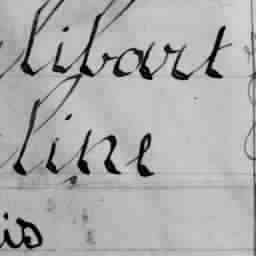 libart
line
is